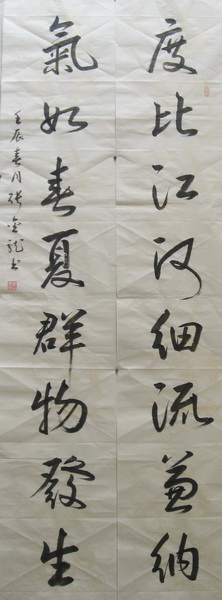 度比江河細流兼納
氣如春夏群物發生
壬辰春月張金龍書